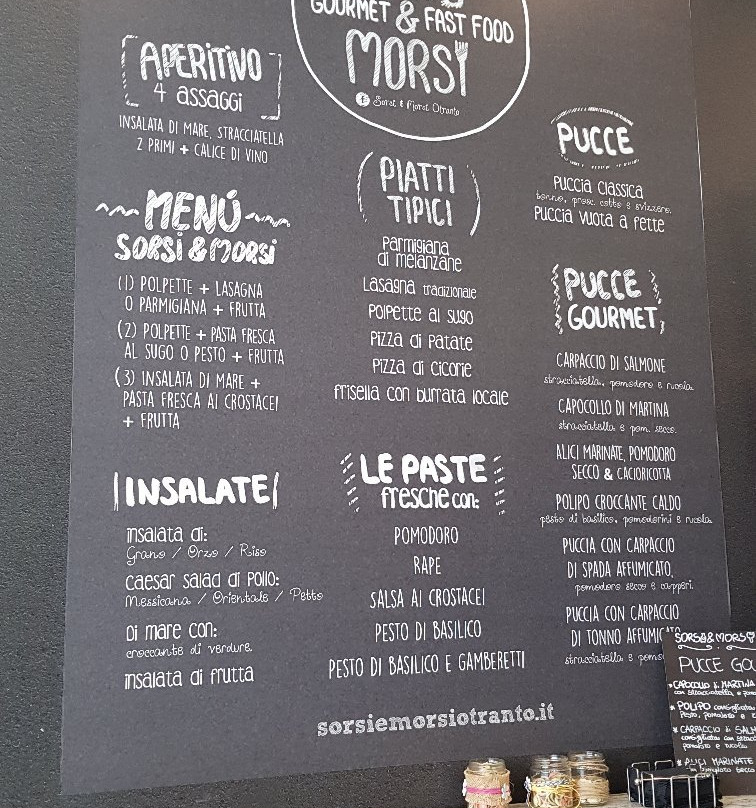 GOURMET & FAST FOOD
MORSI
Sorsi & Morsi Otranto
APERITIVO
4 assaggi
INSALATA DI MARE, STRACCIATELLA
2 PRIMI + CALICE DI VINO
MENÚ
SORSI & MORSI
(1) POLPETTE + LASAGNA
O PARMIGIANA + FRUTTA
(2) POLPETTE + PASTA FRESCA
AL SUGO O PESTO + FRUTTA
(3) INSALATA DI MARE +
PASTA FRESCA AI CROSTACEI
+ FRUTTA
INSALATE
insalata di:
Grano / Orzo / Riso
caesar salad di POLLO:
Messicana / Orientale / Petto
Di mare con:
croccante di verdure.
insalata di frutta
PIATTI
TIPICI
Parmigiana
di melanzane
Lasagna tradizionale
Polpette al sugo
Pizza di Patate
Pizza di cicorie
frisella con burrata locale
LE PASTE
fresche con:
POMODORO
RAPE
SALSA AI CROSTACEI
PESTO DI BASILICO
PESTO DI BASILICO E GAMBERETTI
PUCCE
Puccia classica
tonno, prosc. cotto e svizzero.
Puccia vuota a fette
PUCCE
GOURMET
CARPACCIO DI SALMONE
stracciatella, pomodoro e rucola.
CAPOCOLLO DI MARTINA
stracciatella e pom. secco.
ALICI MARINATE, POMODORO
SECCO & CACIORICOTTA
POLIPO CROCCANTE CALDO
pesto di basilico, pomodorini e rucola.
PUCCIA CON CARPACCIO
DI SPADA AFFUMICATO,
pomodoro secco e capperi.
PUCCIA CON CARPACCIO
DI TONNO AFFUMICATO
stracciatella e pomo
sorsiemorsiotranto.it
SORSI&MORSI
PUCCE GOU
CAPOCOLLO di MARTINA
con stracciatella e pom
POLIPO
Pesto, pomodoro e
CARPACCIO di SALM
pomodoro e rucola
ALICI MARINATE
secco